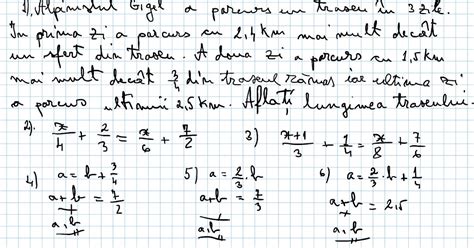 1) Alpinistul Gigel a parcurs un traseu în 3 zile.
În prima zi a parcurs cu 2,4 km mai mult decât
un sfert din traseu. A doua zi a parcurs cu 1,5 km
mai mult decât 3/4 din traseul rămas iar ultima zi
a parcurs ultimii 2,5 km. Aflați lungimea traseului.
2) x/4 + 2/3 = x/6 + 7/2 3) x+1/3 + 1/4 = x/8 + 7/6
4) a = b + 3/4 5) a = 2/3 · b 6) a = 2/3 · b + 1/4
a+b = 7/2 a+b = 7/3 a+b = 2,5
a, b a, b a, b